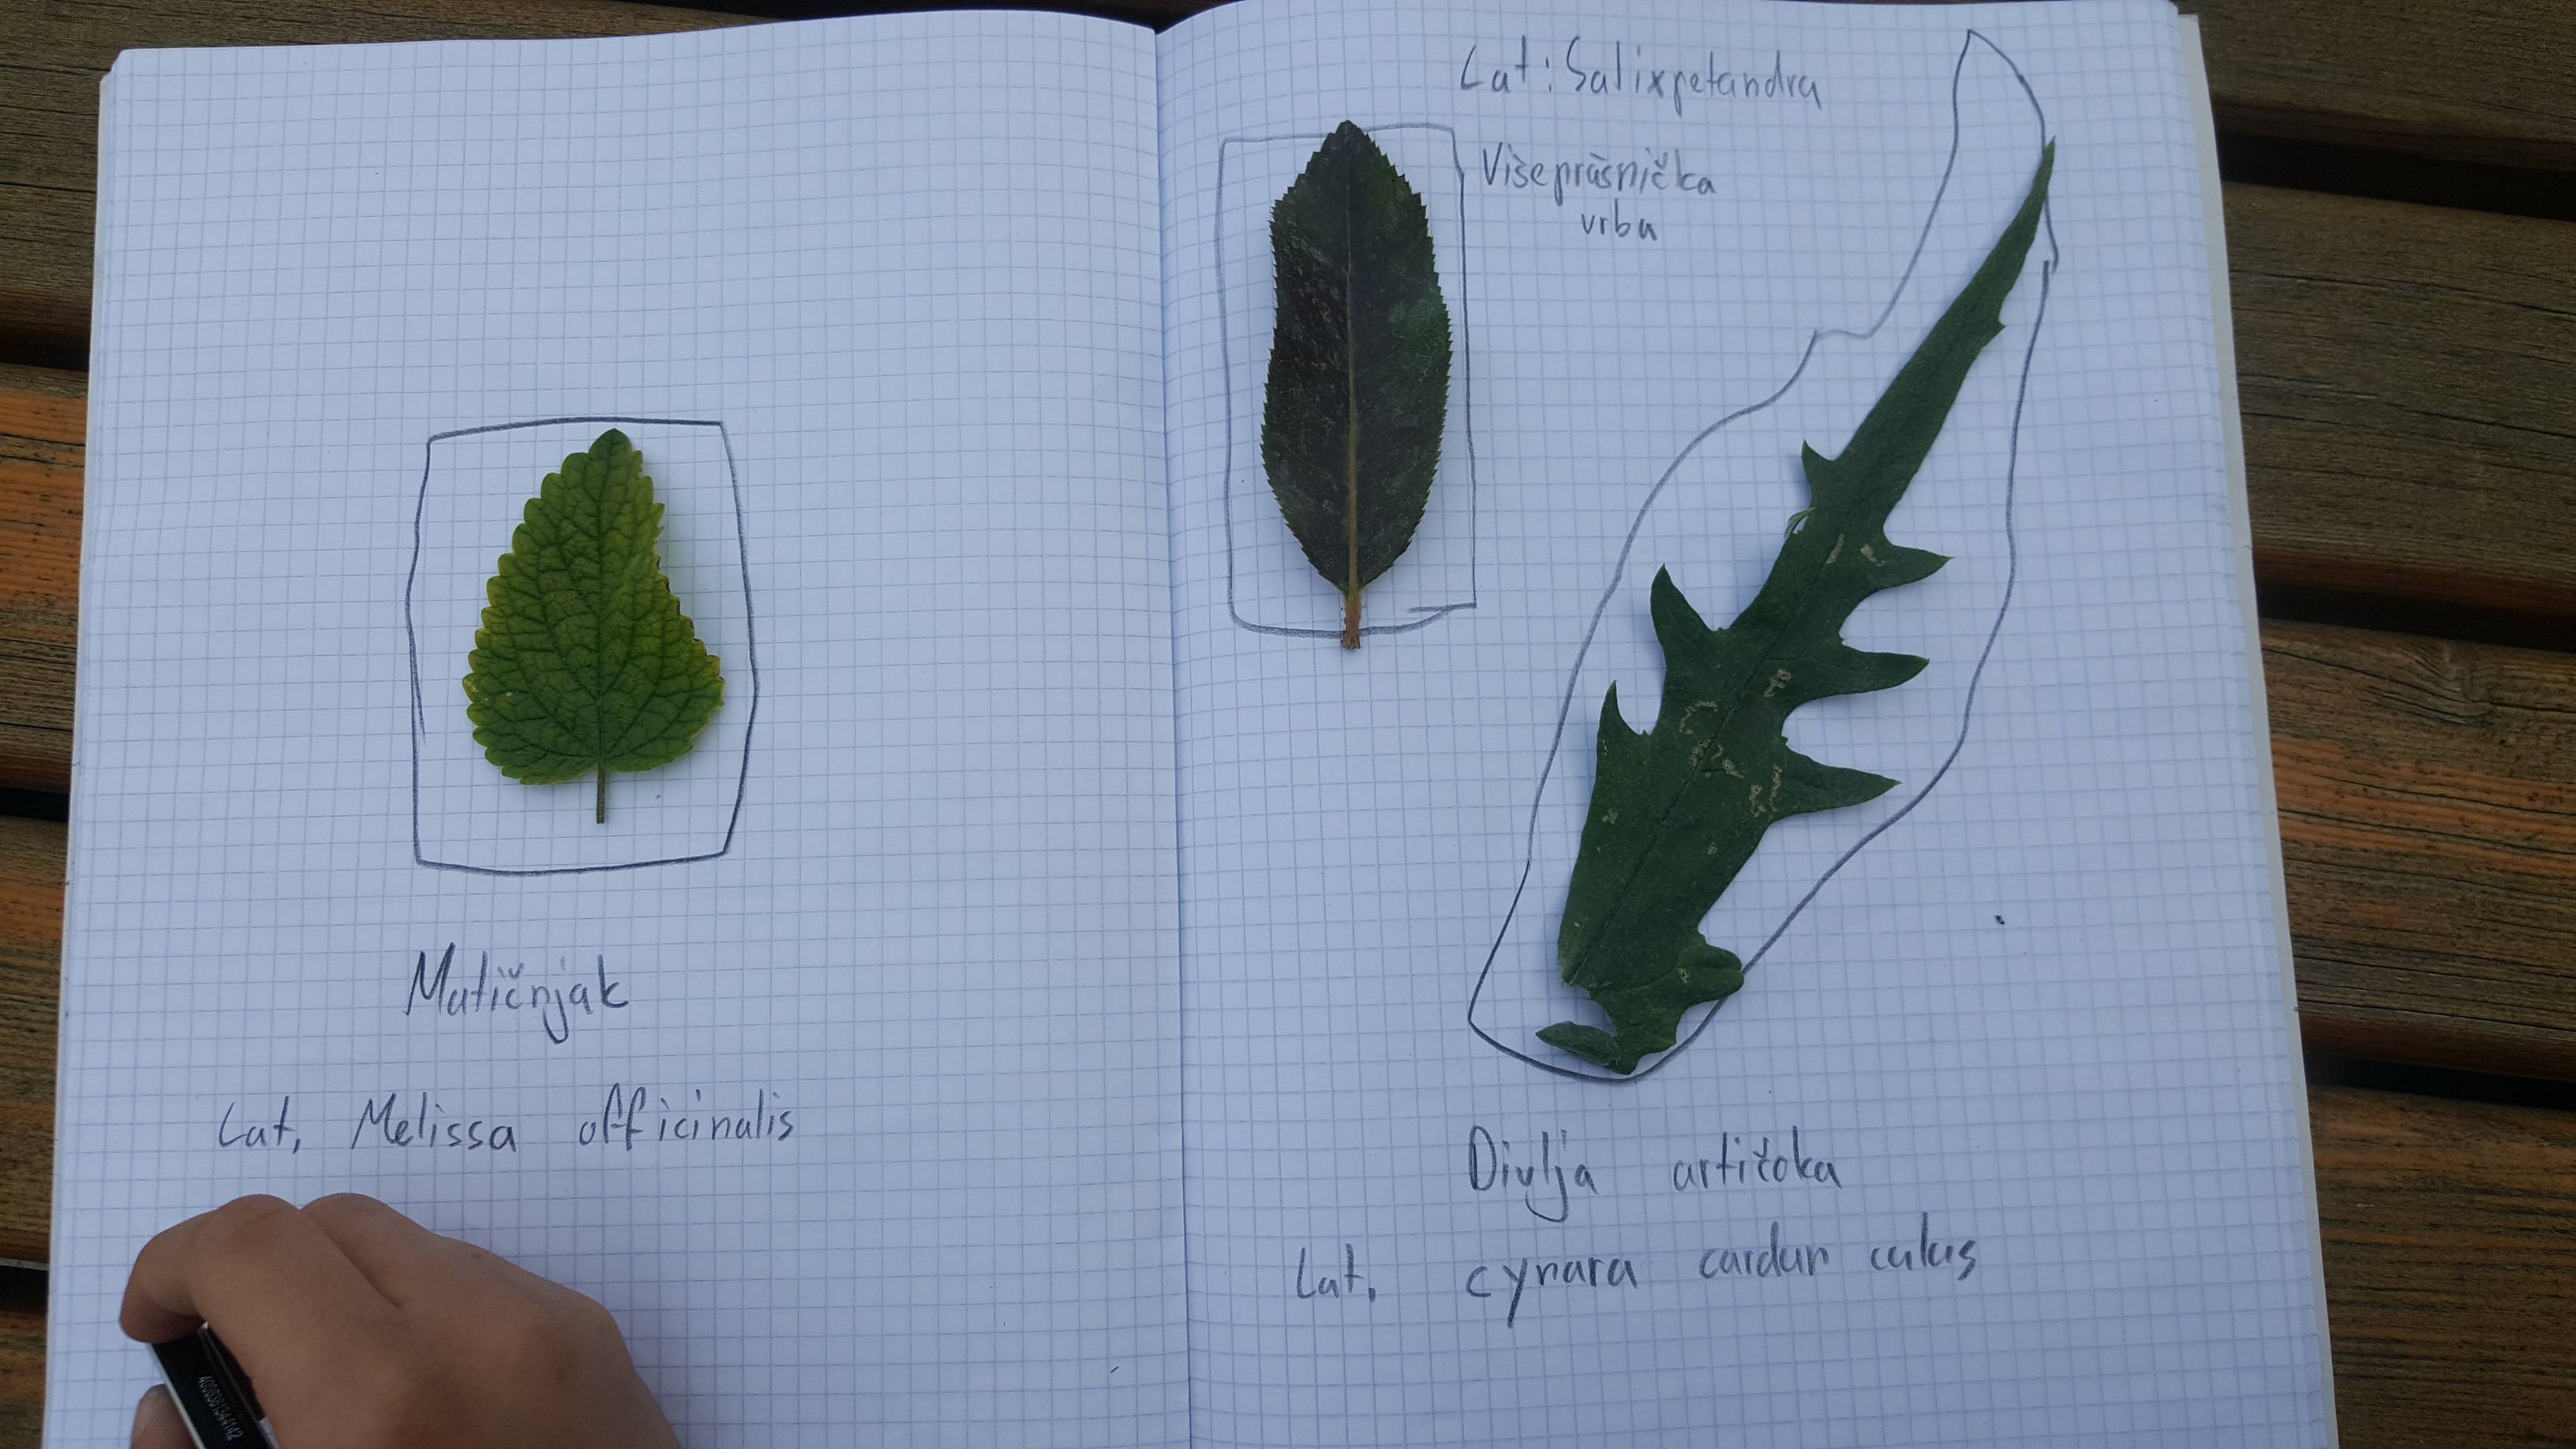 Matičnjak
Lat, Melissa officinalis
Lat: Salixpetandra
Višeprašnička
vrba
Divlja artičoka
Lat. cynara cardun culus
4006381344142